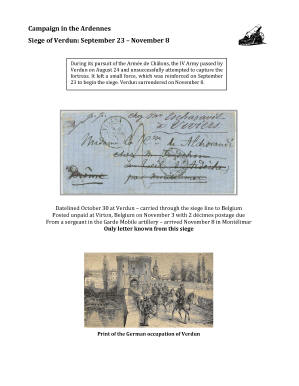 Campaign in the Ardennes
Siege of Verdun: September 23 – November 8
During its pursuit of the Armée de Châlons, the IV Army passed by
Verdun on August 24 and unsuccessfully attempted to capture the
fortress. It left a small force, which was reinforced on September
23 to begin the siege. Verdun surrendered on November 8.
chez Mr
Viviers
Madame
Datelined October 30 at Verdun – carried through the siege line to Belgium
Posted unpaid at Virton, Belgium on November 3 with 2 décimes postage due
From a sergeant in the Garde Mobile artillery – arrived November 8 in Montélimar
Only letter known from this siege
Print of the German occupation of Verdun